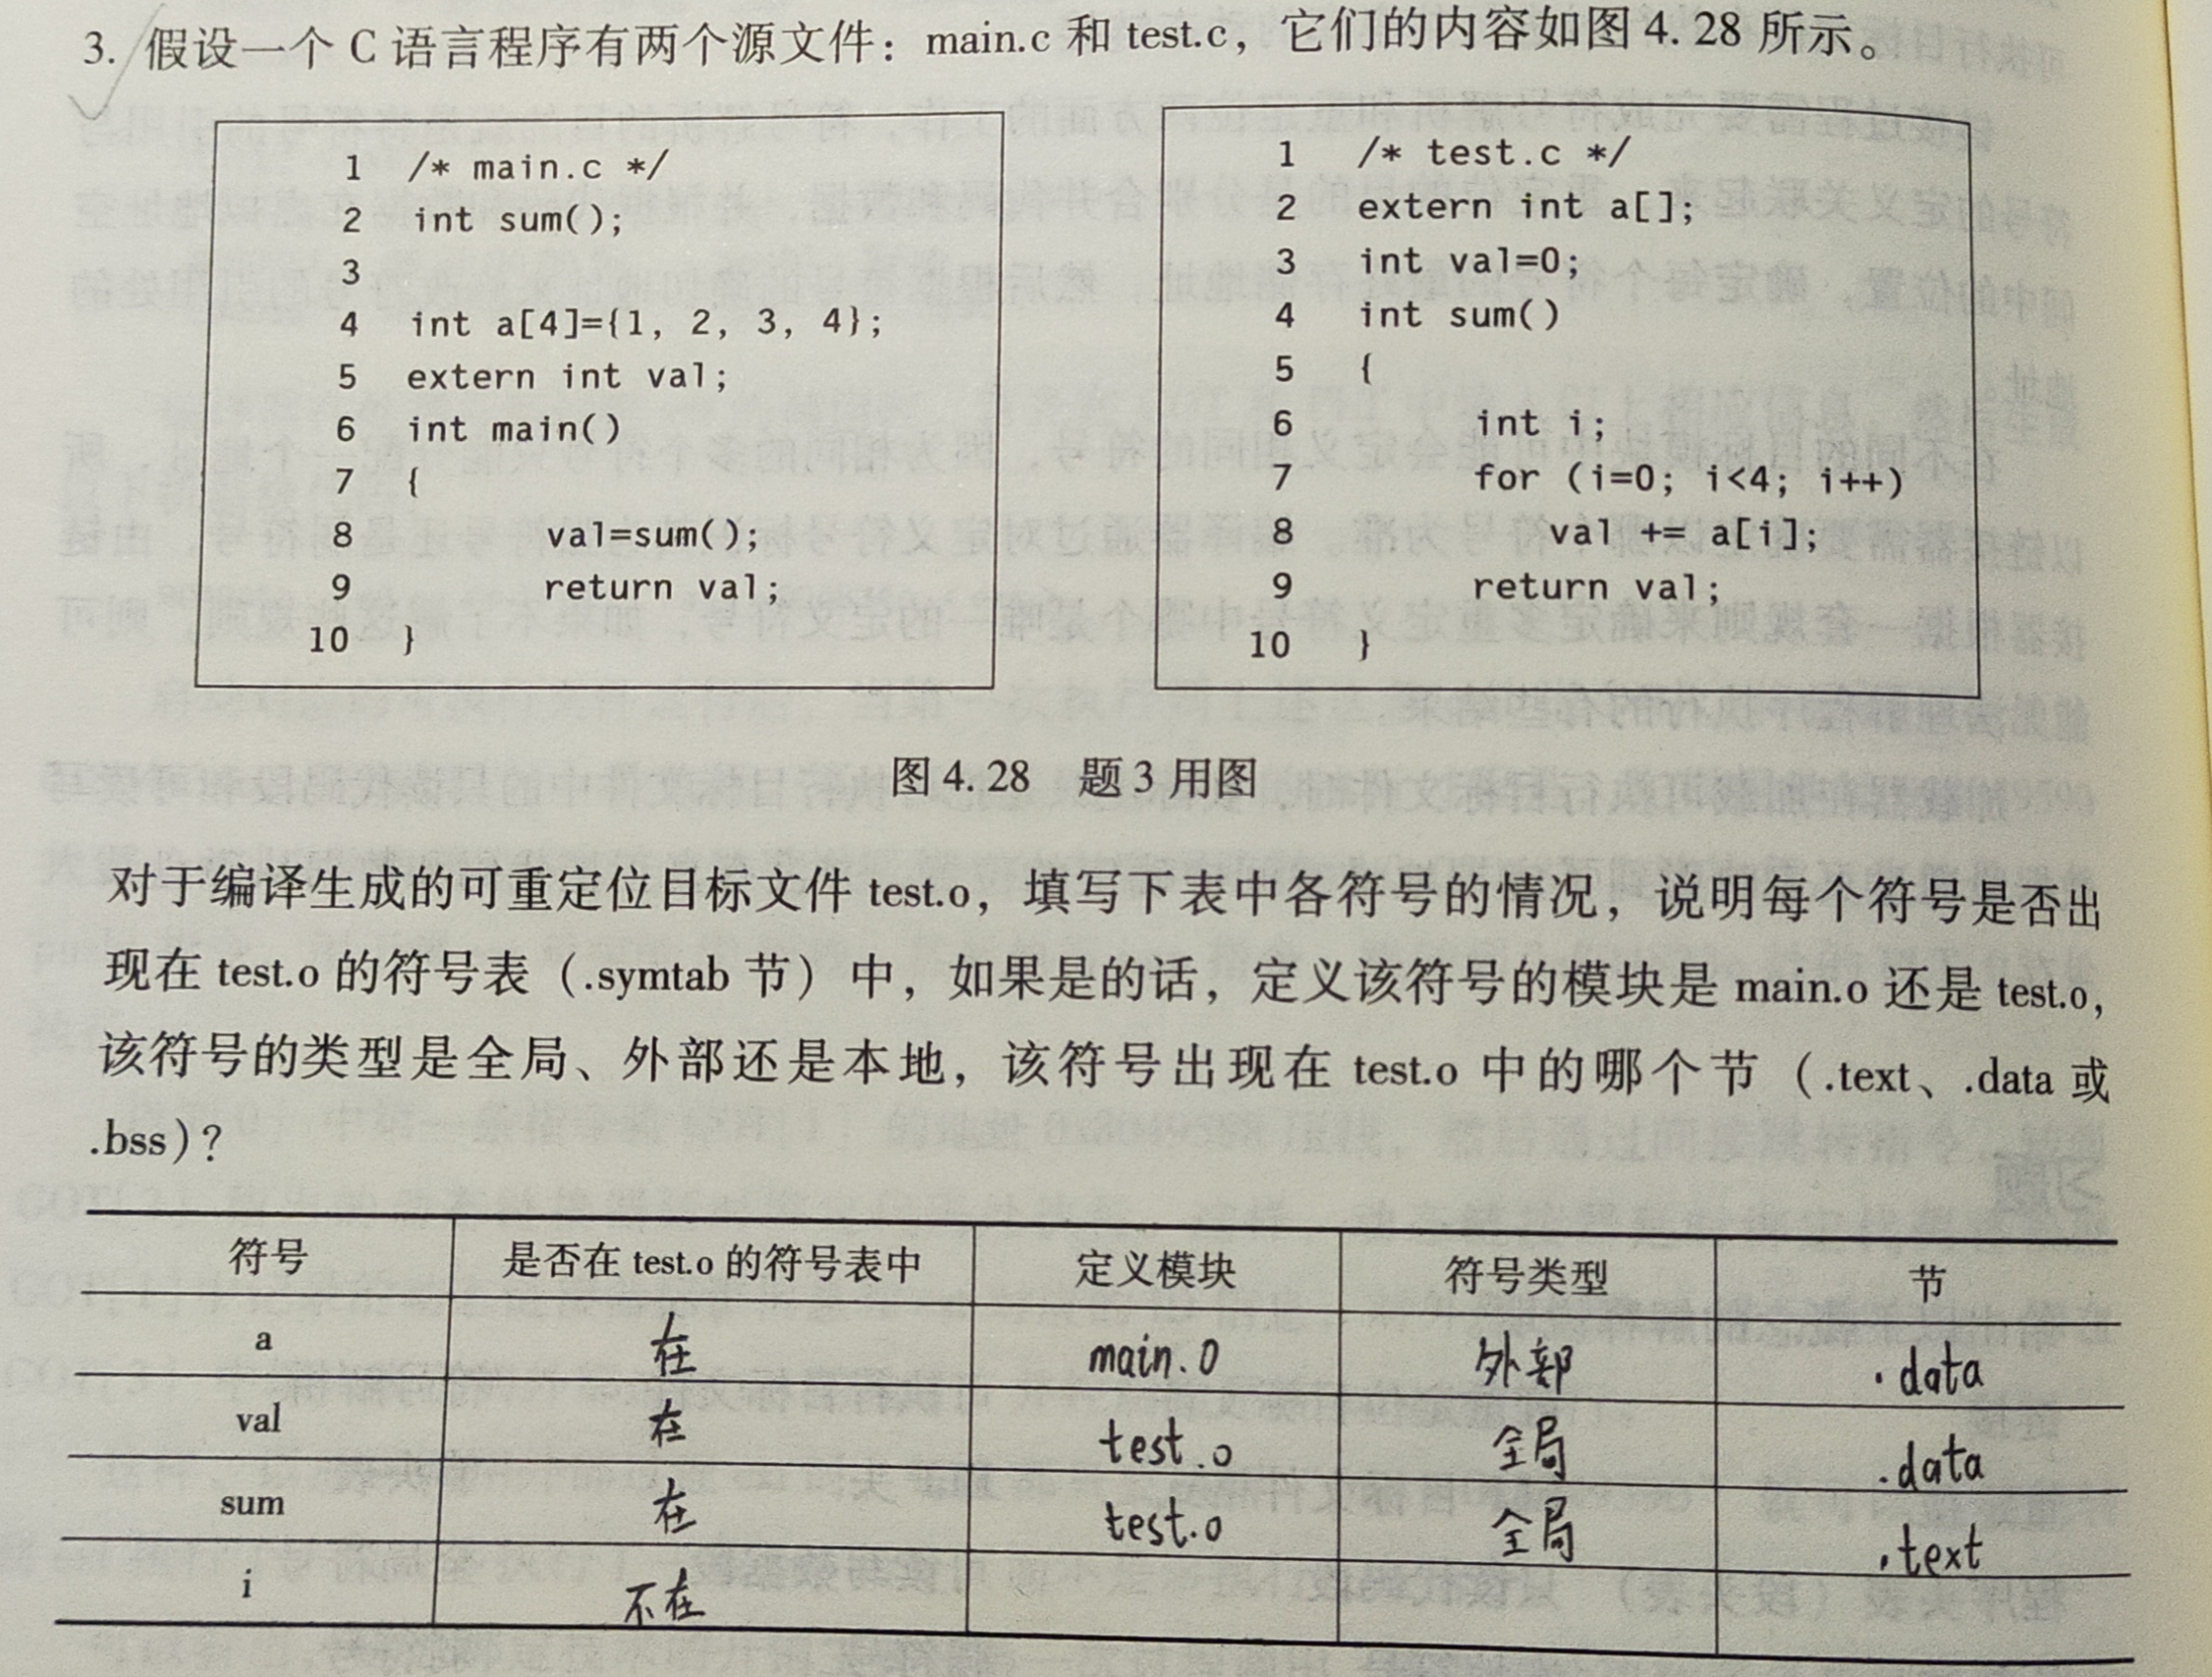 3. 假设一个 C 语言程序有两个源文件：main.c 和 test.c，它们的内容如图 4.28 所示。
1 /* main.c */
2 int sum();
3
4 int a[4]={1, 2, 3, 4};
5 extern int val;
6 int main()
7 {
8 val=sum();
9 return val;
10 }
1 /* test.c */
2 extern int a[];
3 int val=0;
4 int sum()
5 {
6 int i;
7 for (i=0; i<4; i++)
8 val += a[i];
9 return val;
10 }
图 4.28 题 3 用图
对于编译生成的可重定位目标文件 test.o，填写下表中各符号的情况，说明每个符号是否出
现在 test.o 的符号表（.symtab 节）中，如果是的话，定义该符号的模块是 main.o 还是 test.o，
该符号的类型是全局、外部还是本地，该符号出现在 test.o 中的哪个节（.text、.data 或
.bss）？
符号 是否在 test.o 的符号表中 定义模块 符号类型 节
a 在 main.o 外部 .data
val 在 test.o 全局 .data
sum 在 test.o 全局 .text
i 不在